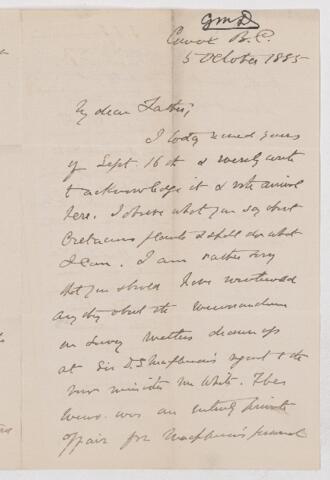 GMD
Comox B.C.
5 October 1885
My dear Father,
I today received yours
of Sept. 16th & merely write
to acknowledge it & note arrival
here. I observe what you say about
Cretaceous plants & shall do what
I can. I am rather sorry
that you should have mentioned
anything about the memorandum
on Survey matters drawn up
at Sir D. L. Macpherson's request & the
new minister Mr White. The
memo. was an entirely private
affair for Macpherson's personal